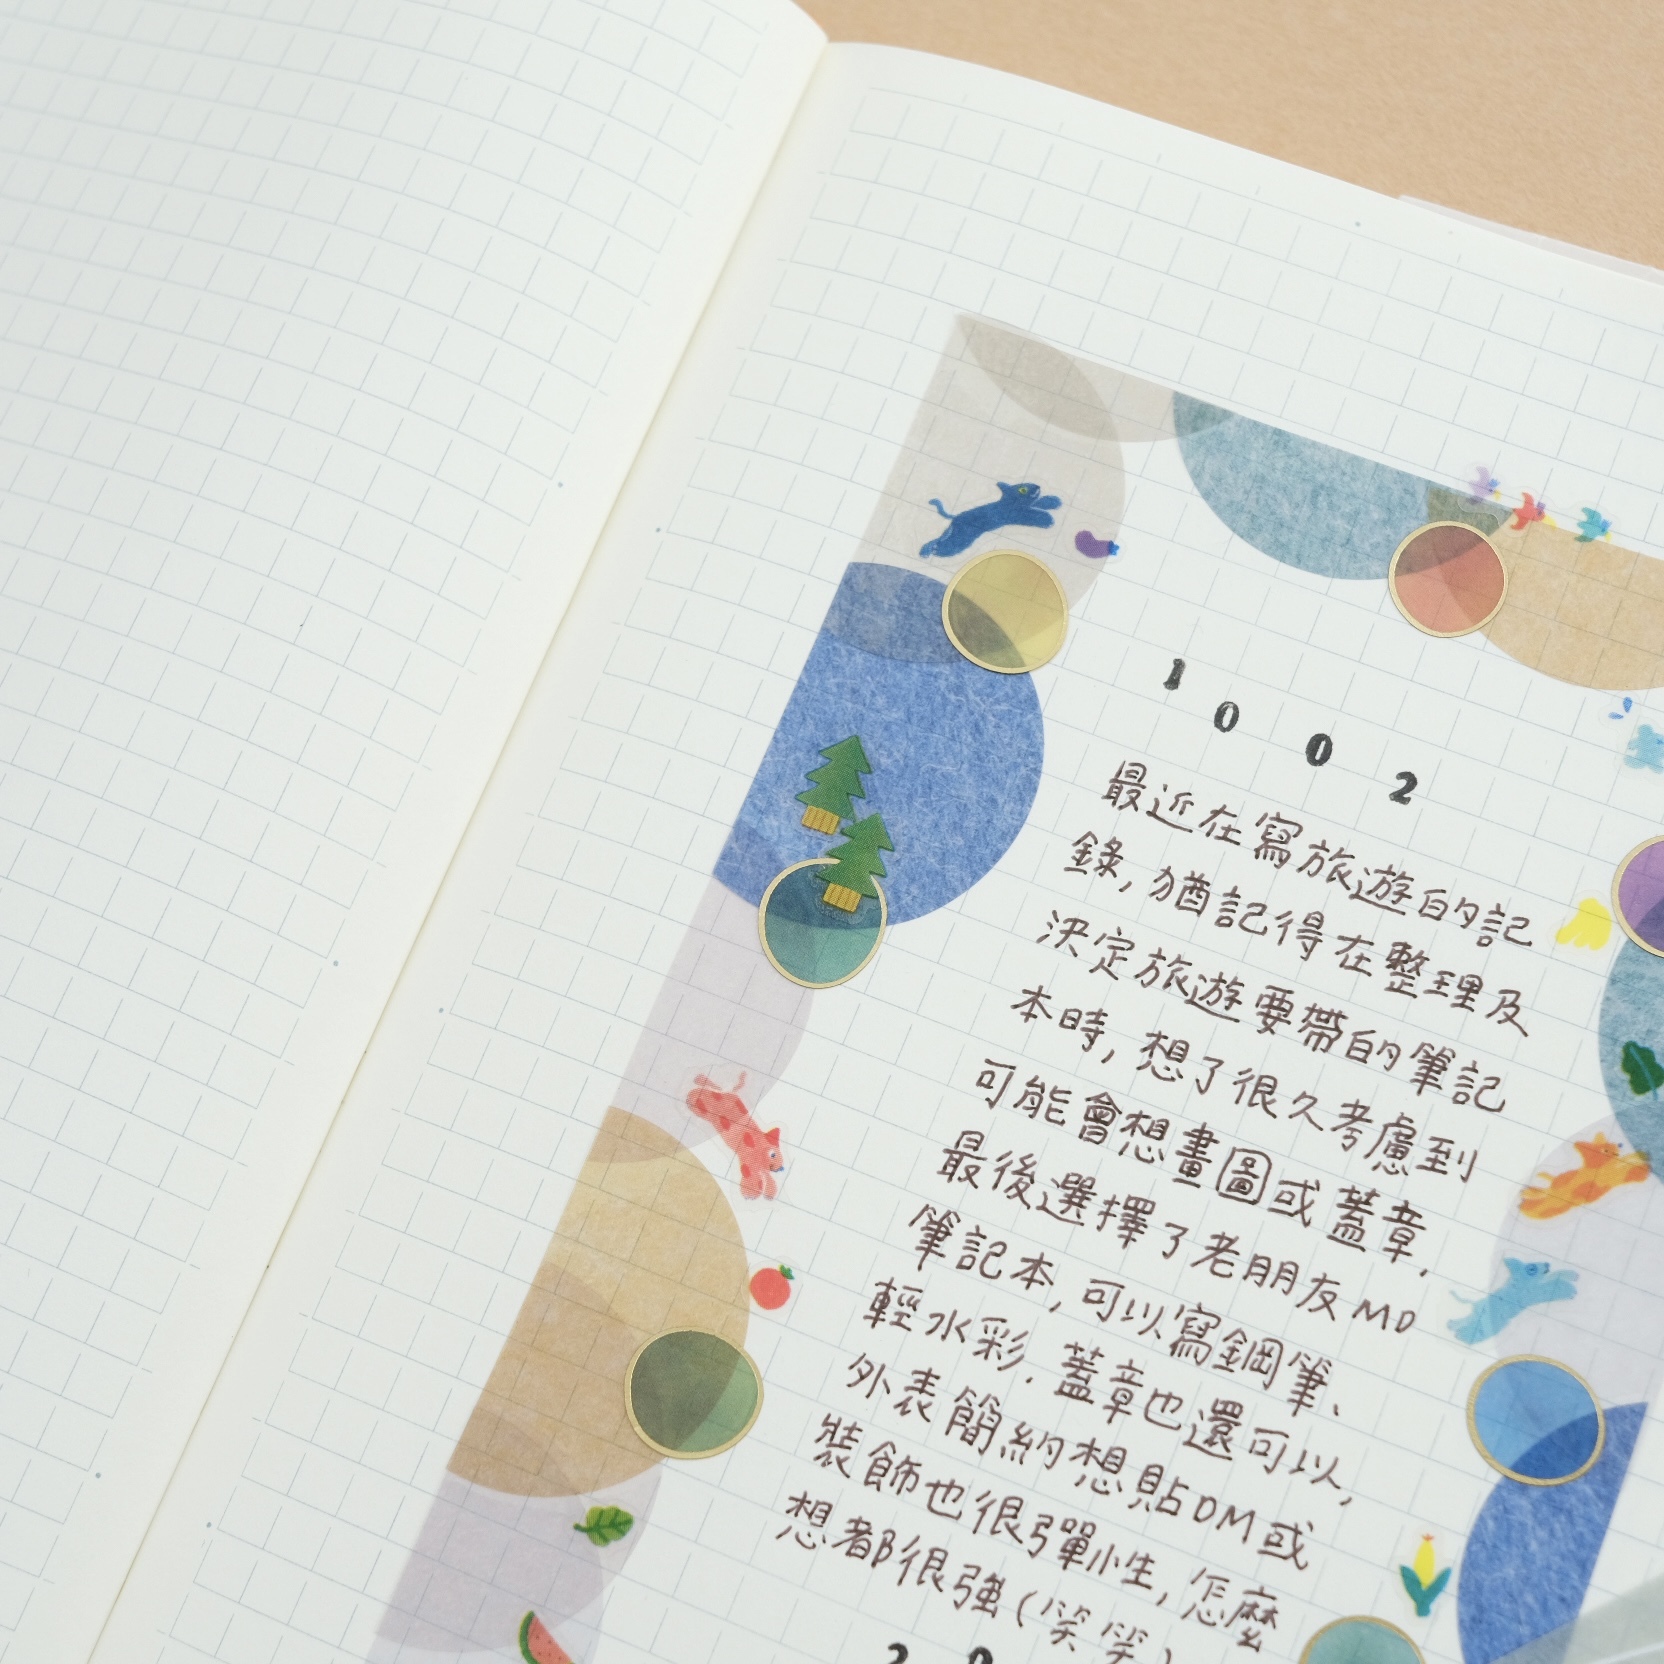 1 0 0 2
最近在寫旅遊的記
錄，猶記得在整理及
決定旅遊要帶的筆記
本時，想了很久考慮到
可能會想畫圖或蓋章，
最後選擇了老朋友MD
筆記本，可以寫鋼筆、
輕水彩．蓋章也還可以，
外表簡約想貼DM或
裝飾也很彈性，怎麼
想都很強(笑笑)
2 0